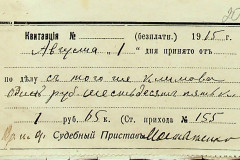 Квитанція № (безплатн.) 1915 г.
Августа „1" дня принято отъ
по дѣлу съ того же Климова
одинъ руб. шестьдесят пять к.
1 руб. 65 к. (Ст. прихода № 155
И. д. Судебный Приставъ